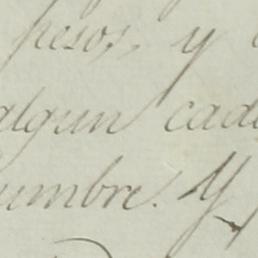 pesos, y
algun cad
umbre. Y